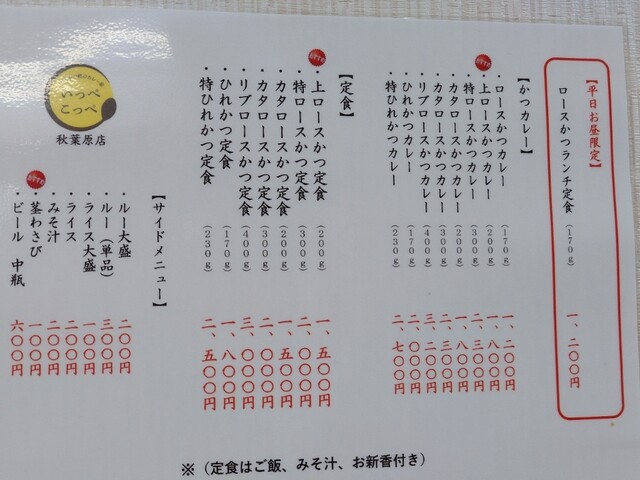 【平日お昼限定】
ロースかつランチ定食 (170g) 一、二〇〇円
【かつカレー】
・ロースかつカレー (170g) 一、二〇〇円
おすすめ
・上ロースかつカレー (200g) 一、八〇〇円
・特ロースかつカレー (300g) 二、三〇〇円
・カタロースかつカレー (200g) 一、八〇〇円
・カタロースかつカレー (300g) 二、三〇〇円
・リブロースかつカレー (400g) 三、二〇〇円
・ひれかつカレー (170g) 二、〇〇〇円
・特ひれかつカレー (230g) 二、七〇〇円
【定食】
おすすめ
・上ロースかつ定食 (200g) 一、五〇〇円
・特ロースかつ定食 (300g) 二、〇〇〇円
・カタロースかつ定食 (200g) 一、五〇〇円
・カタロースかつ定食 (300g) 二、〇〇〇円
・リブロースかつ定食 (400g) 三、〇〇〇円
・ひれかつ定食 (170g) 一、八〇〇円
・特ひれかつ定食 (230g) 二、五〇〇円
いっぺ
こっぺ
秋葉原店
【サイドメニュー】
・ルー大盛 二〇〇円
・ルー(単品) 三〇〇円
・ライス大盛 一〇〇円
・ライス 二〇〇円
・みそ汁 二〇〇円
おすすめ
・茎わさび 一〇〇円
・ビール 中瓶 六〇〇円
※(定食はご飯、みそ汁、お新香付き)